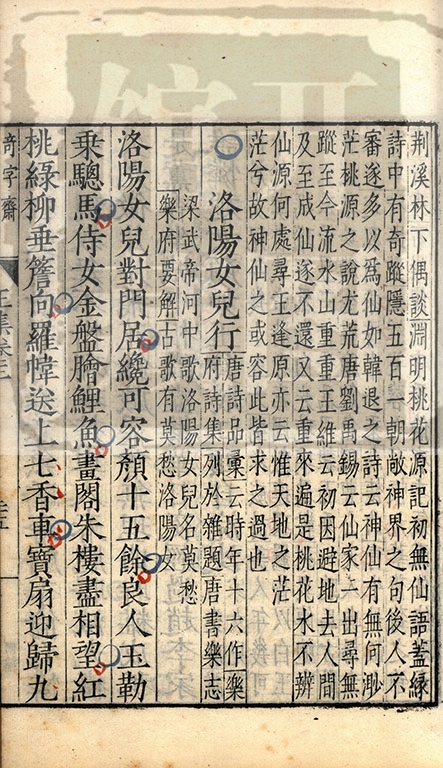 荆溪林下偶談淵明桃花源記初無仙語蓋緣
詩中有奇蹤隱五百一朝敞神界之句後人不
審遂多以為仙如韓退之詩云神仙有無何渺
茫桃源之說尤荒唐劉禹錫云仙家一出尋無
蹤至今流水山重重王維云初因避地去人間
及至成仙遂不還又云重來遍是桃花水不辨
仙源何處尋王逢原亦云惟天地之茫
茫兮故神仙之或容此皆求之過也
洛陽女兒行 唐詩品彙云時年十六作樂
府詩集列於雜題唐書樂志
梁武帝河中歌洛陽女兒名莫愁
樂府要解古歌有莫愁洛陽女
洛陽女兒對門居纔可容顏十五餘良人玉勒
乘驄馬侍女金盤膾鯉魚畫閣朱樓盡相望紅
桃綠柳垂簷向羅幃送上七香車寶扇迎歸九
奇字齋